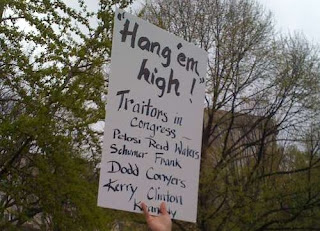 "Hang 'em
high!"
Traitors in
Congress –
Pelosi Reid Waters
Schumer Frank
Dodd Conyers
Kerry Clinton
Kennedy